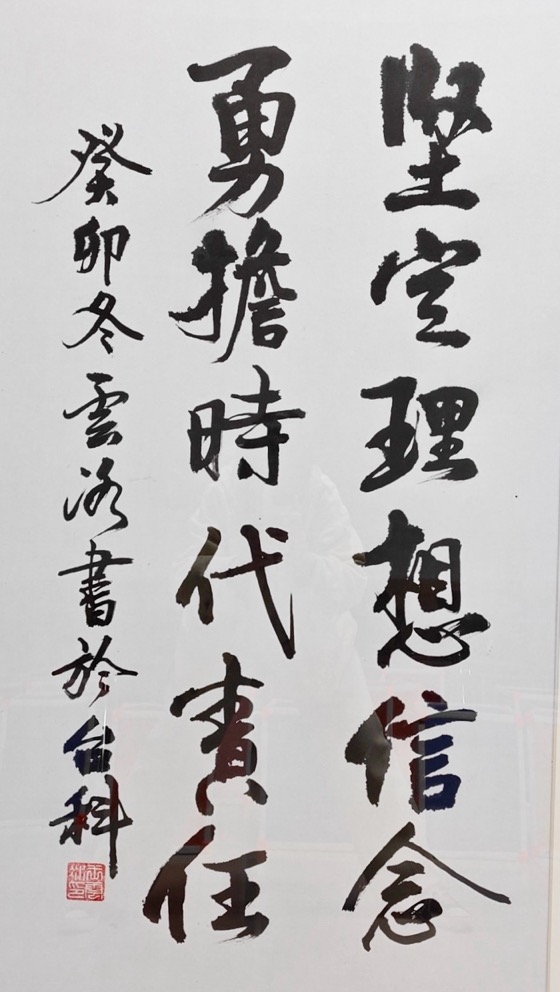 坚定理想信念
勇擔時代責任
癸卯冬雲洛書於台科